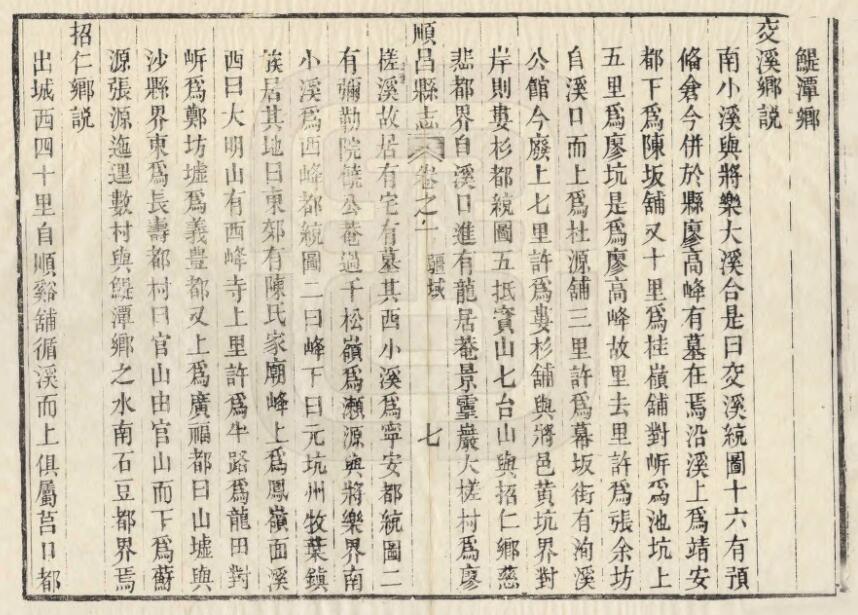 鯷潭鄉
交溪鄉説
南小溪與將樂大溪合是曰交溪統圖十六有預
俻倉今併於縣廖高峰有墓在焉沿溪上爲靖安
都下爲陳坂舖又十里爲桂嶺舖對岍爲池坑上
五里爲廖坑是爲廖高峰故里去里許爲張余坊
自溪口而上爲杜源舖三里許爲幕坂街有洵溪
公館今廢上七里許爲婁杉舖與將邑黄坑界對
岸則婁杉都統圖五抵寳山七台山與招仁鄉慈
悲都界自溪口進有龍居菴景靈巖大槎村爲廖
順昌縣志 卷之一 疆域 七
槎溪故居有宅有墓其西小溪爲寧安都統圖二
有彌勒院饒公菴過千松嶺爲瀨源與將樂界南
小溪爲西峰都統圖二曰峰下曰元坑州牧葉鎮
族居其地曰東郊有陳氏家廟峰上爲鳳嶺面溪
西曰大明山有西峰寺上里許爲半路爲龍田對
岍爲鄭坊墟爲義豊都又上爲廣福都曰山墟與
沙縣界東爲長壽都村曰官山由官山而下爲蘇
源張源迤邐數村與鯷潭鄉之水南石豆都界焉
招仁鄉説
出城西四十里自順谿舖循溪而上俱屬莒口都